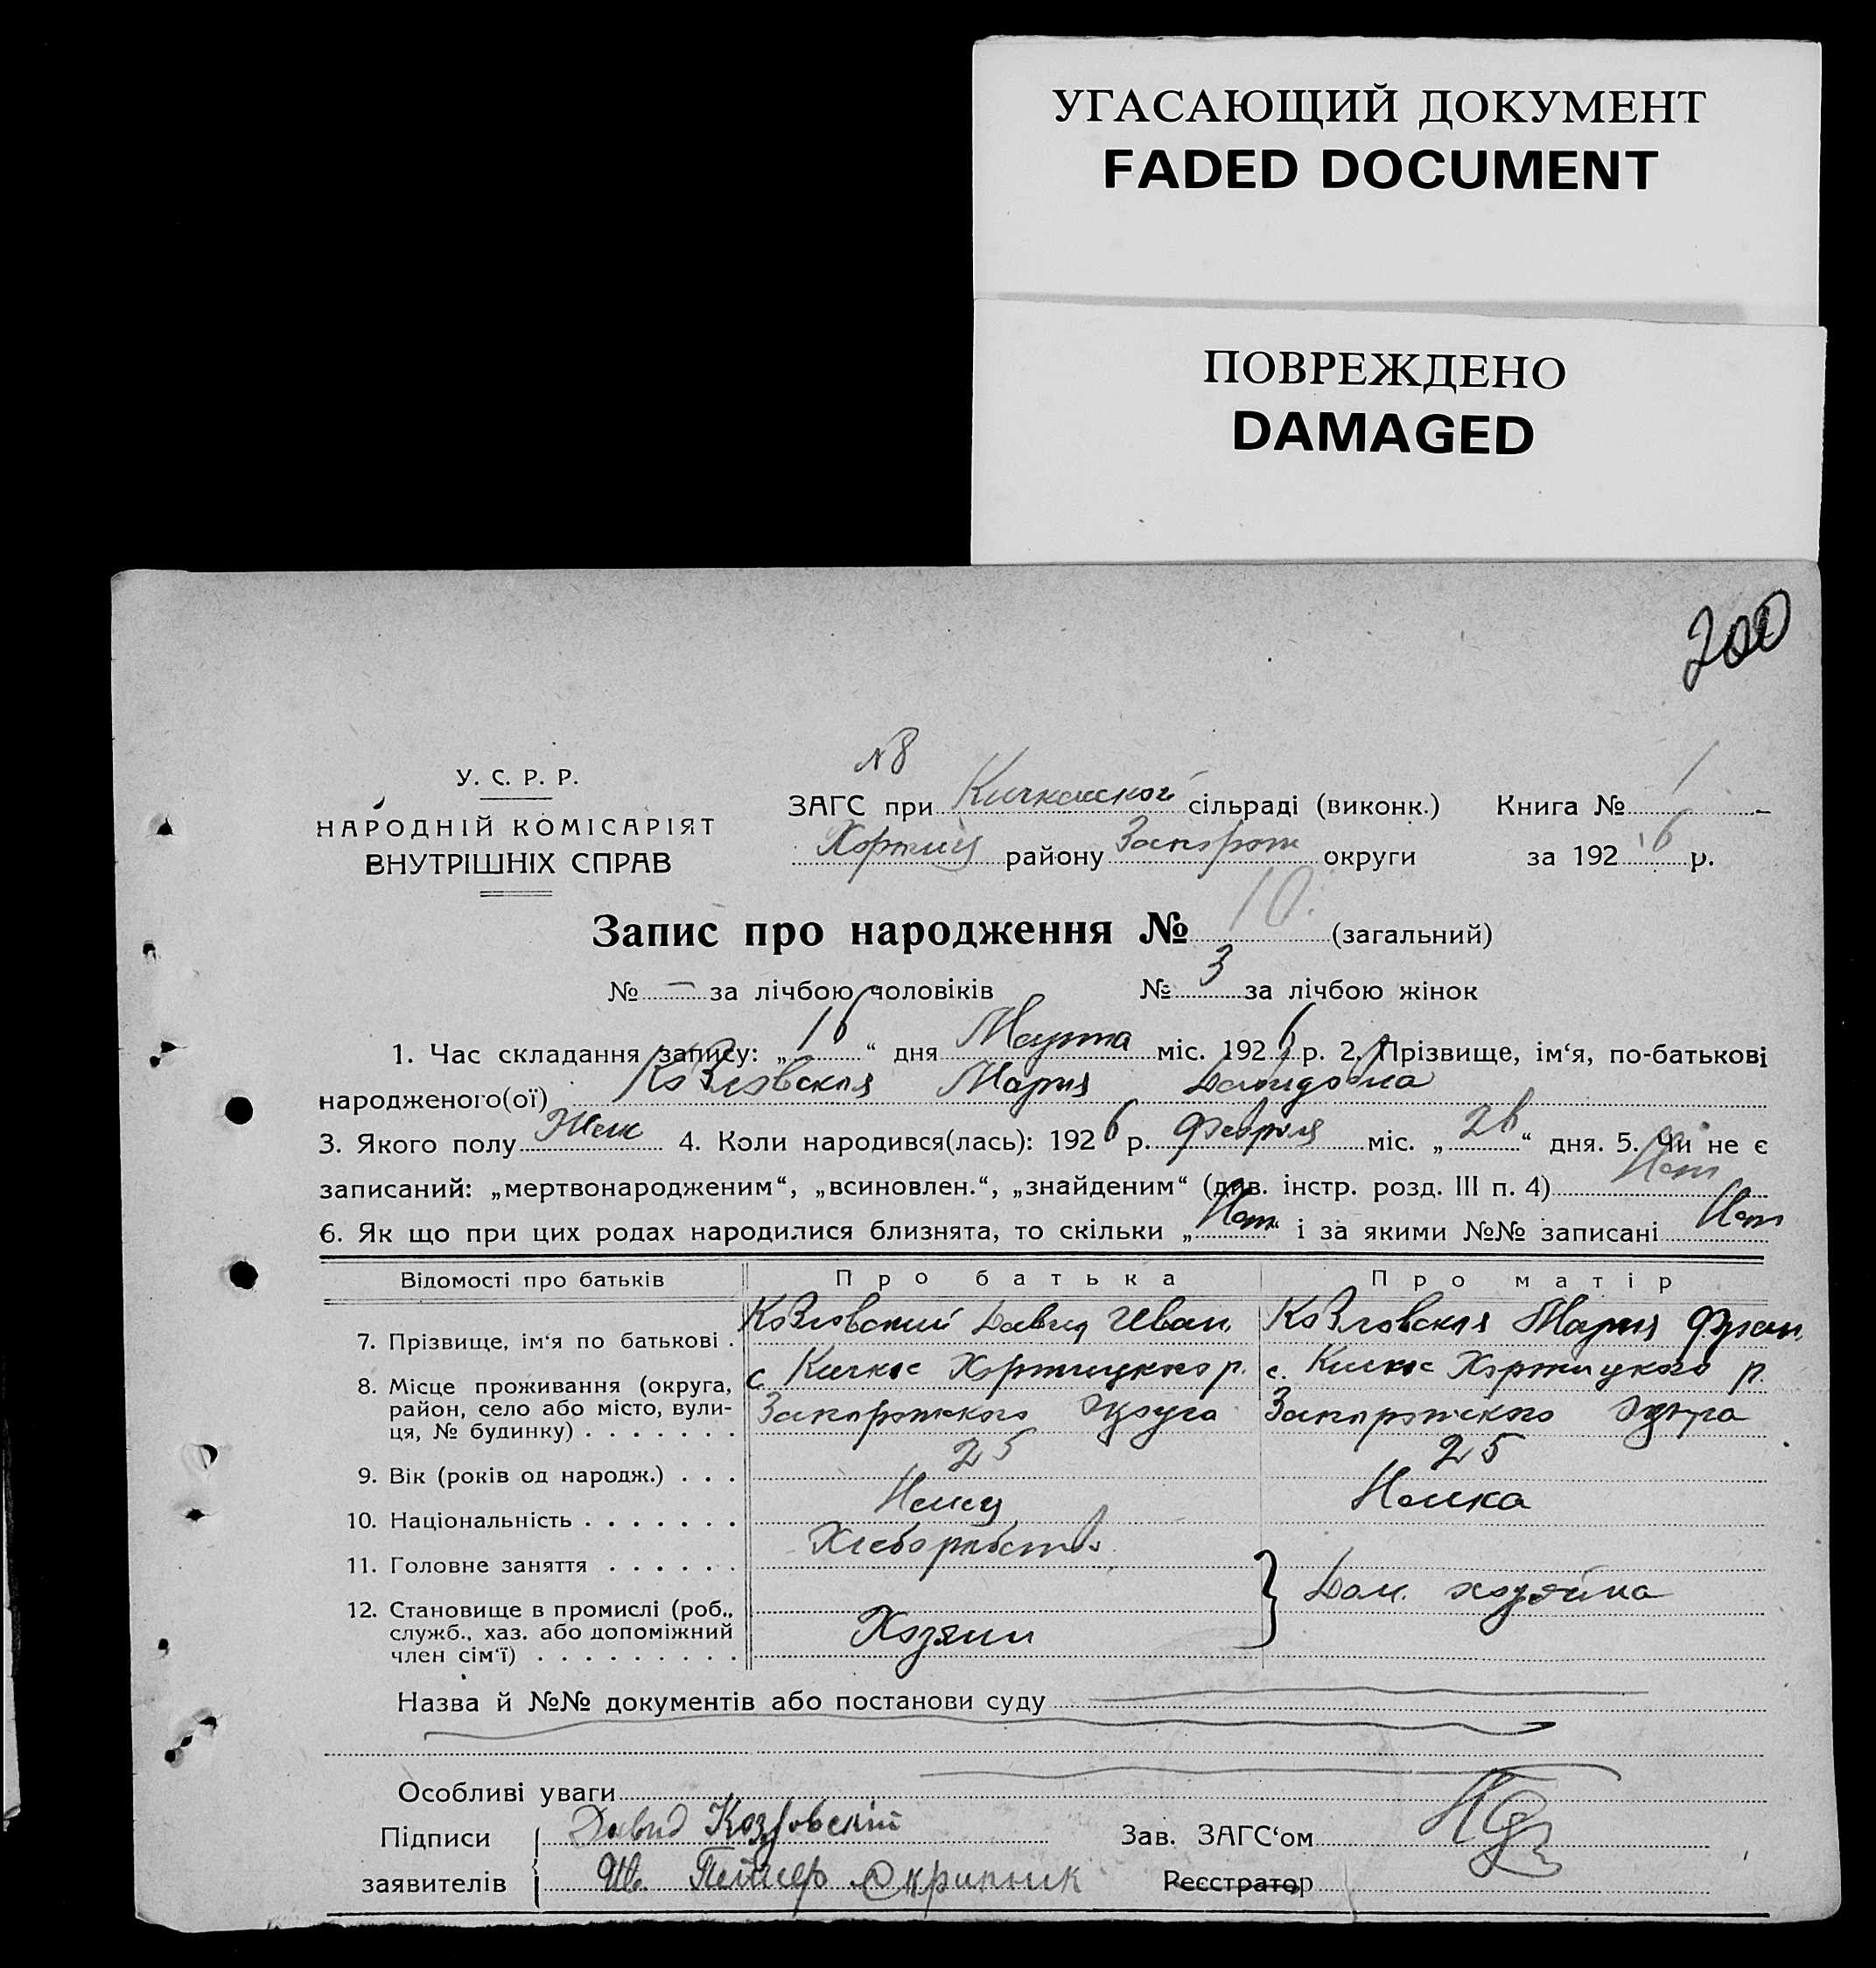 УГАСАЮЩИЙ ДОКУМЕНТ
FADED DOCUMENT
ПОВРЕЖДЕНО
DAMAGED
200
N8
У. С. Р. Р.
НАРОДНІЙ КОМІСАРІЯТ
ВНУТРІШНІХ СПРАВ
ЗАГС при Кичкасской сільраді (виконк.) Книга № 1
Хортиц района Запорож округи за 1926 р.
Запис про народження № 10. (загальний)
№ — за лічбою чоловіків № 3 за лічбою жінок
1. Час складання запису: „16“ дня Марта міс. 1926 р. 2. Прізвище, ім‘я, по-батькові
народженого(ої) Козловская Мария Давидовна
3. Якого полу Жен 4. Коли народився(лась): 1926 р. Февраля міс. „26“ дня. 5. Чи не є
записаний: „мертвонародженим“, „всиновлен.“, „знайденим“ (див. інстр. розд. III п. 4) Нет
6. Як що при цих родах народилися близнята, то скільки „Нет“ і за якими №№ записані Нет
Відомості про батьків Про батька Про матір
7. Прізвище, ім‘я по батькові . Козловский Давид Иван. Козловская Мария Фран.
8. Місце проживання (округа, район, село або місто, вулиця, № будинку) . . . . . . . с Кичкас Хортицкого р. с. Кичкас Хортицкого р.
Запорожского округа Запорожского округа
9. Вік (років од народж.) . . . 25 25
10. Національність . . . . . . . Немец Немка
11. Головне заняття . . . . . . Хлеборобство
12. Становище в промислі (роб., служб., хаз. або допоміжний член сім‘ї) . . . . . . . . . Хозяин Дом. хозяйка
Назва й №№ документів або постанови суду
Особливі уваги
Підписи Давид Козловскій Зав. ЗАГС‘ом
заявителів Скрипник Реєстратор